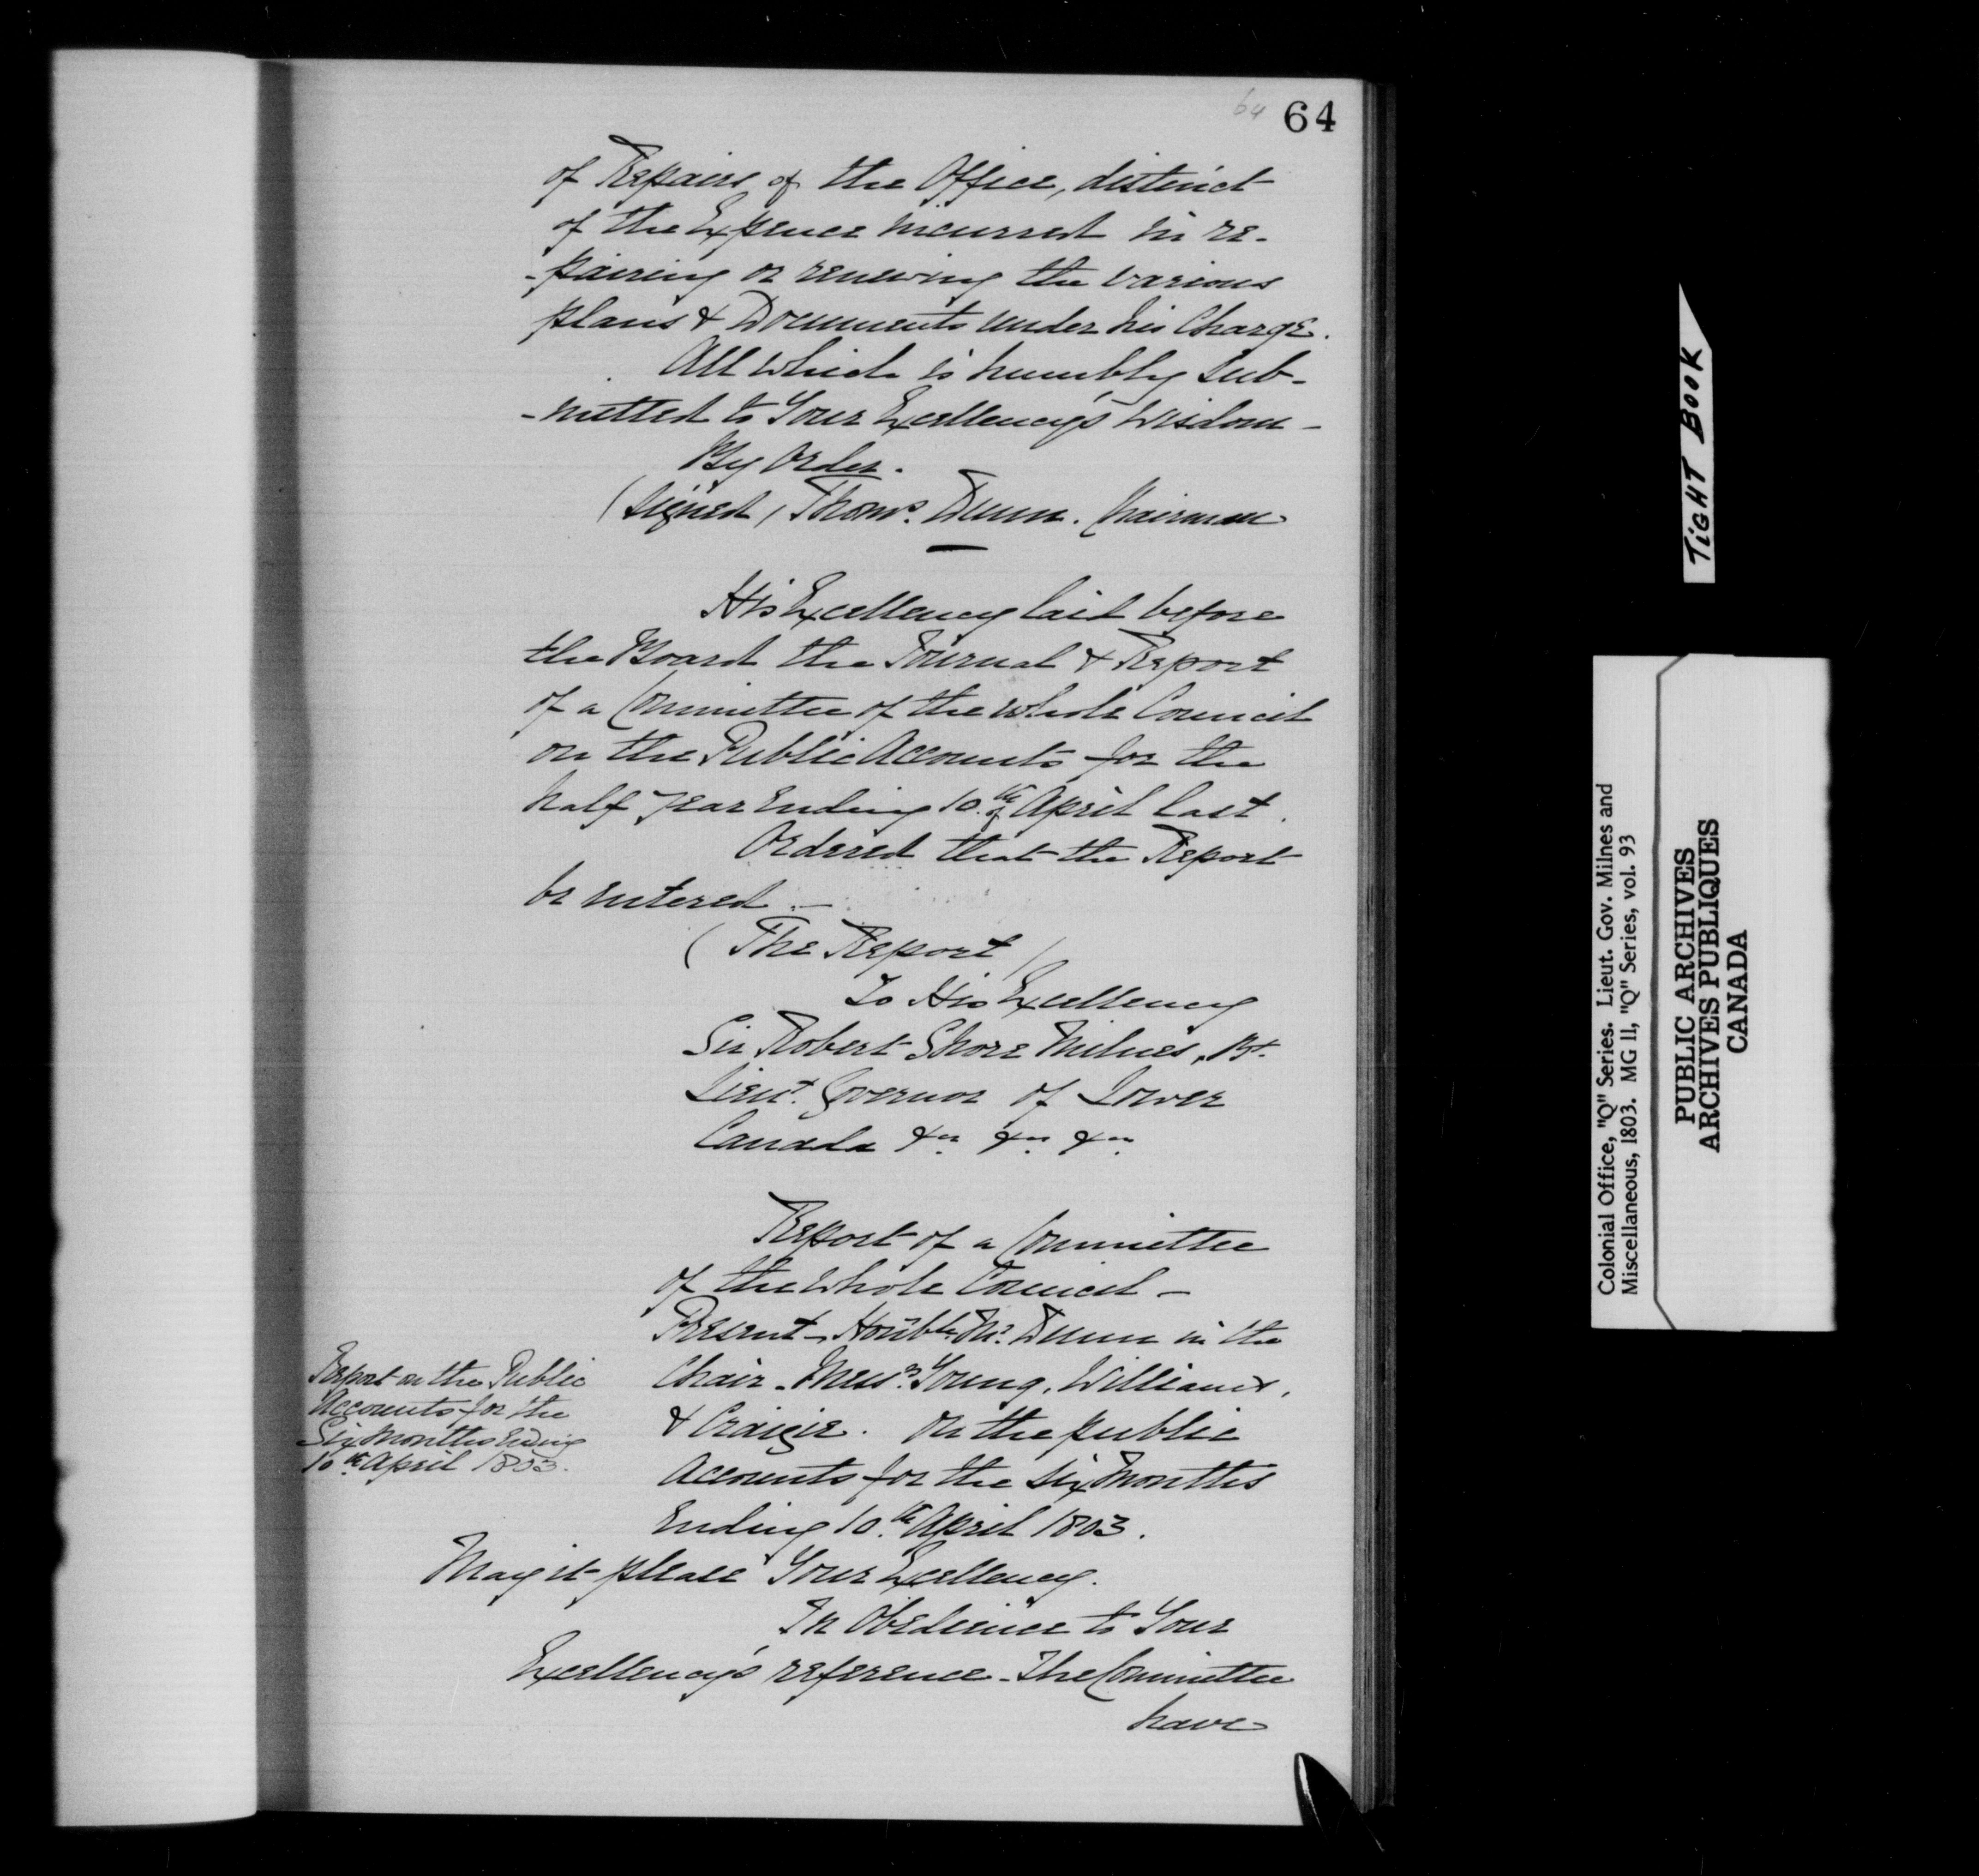 64 64
of Repairs of the Office, distinct
of the Expence incurred in re-
-pairing or renewing the various
plans & Documents under his Charge.
All which is humbly sub-
-mitted to Your Excellency's Wisdom -
By Order.
(signed) Thoms. Dunn. Chairman
His Excellency laid before
the Board the Journal & Report
of a Committee of the whole Council
on the Public Accounts for the
half year Ending 10.th April last.
Ordered that the Report
be entered. -
(The Report)
To His Excellency
Sir Robert Shore Milnes, Bt.
Lieut. Governor of Lower
Canada &ca. &ca. &ca.
Report of a Committee
of the whole Council -
Present - Honble. Mr. Dunn in the
Chair - Messrs. Young, Williams,
& Craigie. On the public
Accounts for the six Months
Ending 10.th April 1803.
Report on the Public
Accounts for the
Six Months Ending
10th April 1803.
May it please Your Excellency.
In Obedience to Your
Excellency's reference - The Committee
have
TIGHT BOOK
Colonial Office, "Q" Series. Lieut. Gov. Milnes and
Miscellaneous, 1803. MG 11, "Q" Series, vol. 93
PUBLIC ARCHIVES
ARCHIVES PUBLIQUES
CANADA